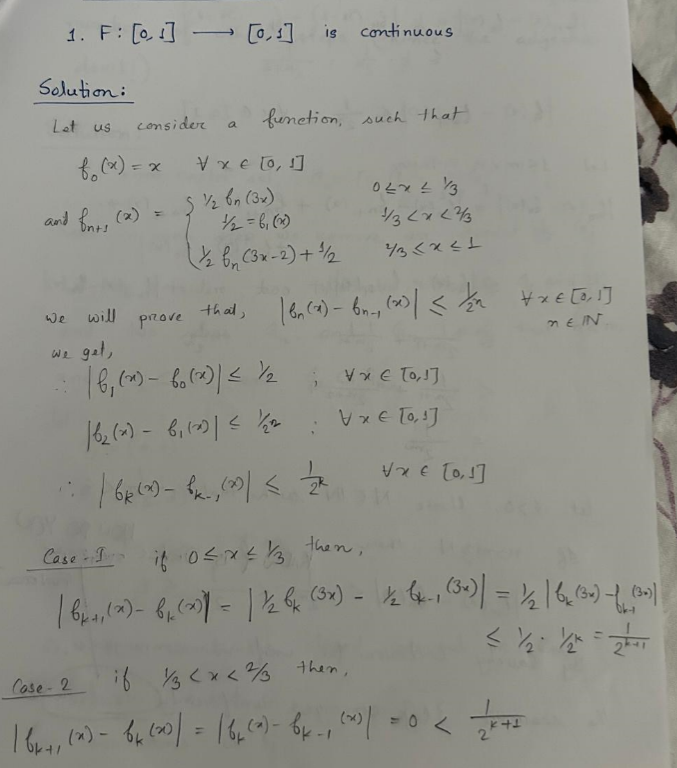 1. F: [0,1] ⟶ [0,1] is continuous
Solution:
Let us consider a function, such that
f₀(x) = x ∀ x ∈ [0,1]
and fₙ₊₁(x) = { ½ fₙ(3x) 0 ≤ x ≤ ⅓
½ = f₁(x) ⅓ < x < ⅔
½ fₙ(3x-2) + ½ ⅔ ≤ x ≤ 1
we will prove that, |fₙ(x) - fₙ₋₁(x)| ≤ 1/2ⁿ ∀ x ∈ [0,1]
n ∈ IN
we get,
∴ |f₁(x) - f₀(x)| ≤ ½ ; ∀ x ∈ [0,1]
|f₂(x) - f₁(x)| ≤ 1/2² ; ∀ x ∈ [0,1]
∴ |fₖ(x) - fₖ₋₁(x)| ≤ 1/2ᵏ ∀ x ∈ [0,1]
Case-I if 0 ≤ x ≤ ⅓ then,
|fₖ₊₁(x) - fₖ(x)| = |½ fₖ(3x) - ½ fₖ₋₁(3x)| = ½ |fₖ(3x) - fₖ₋₁(3x)|
≤ ½ · 1/2ᵏ = 1/2ᵏ⁺¹
Case-2 if ⅓ < x < ⅔ then,
|fₖ₊₁(x) - fₖ(x)| = |fₖ(x) - fₖ₋₁(x)| = 0 < 1/2ᵏ⁺¹